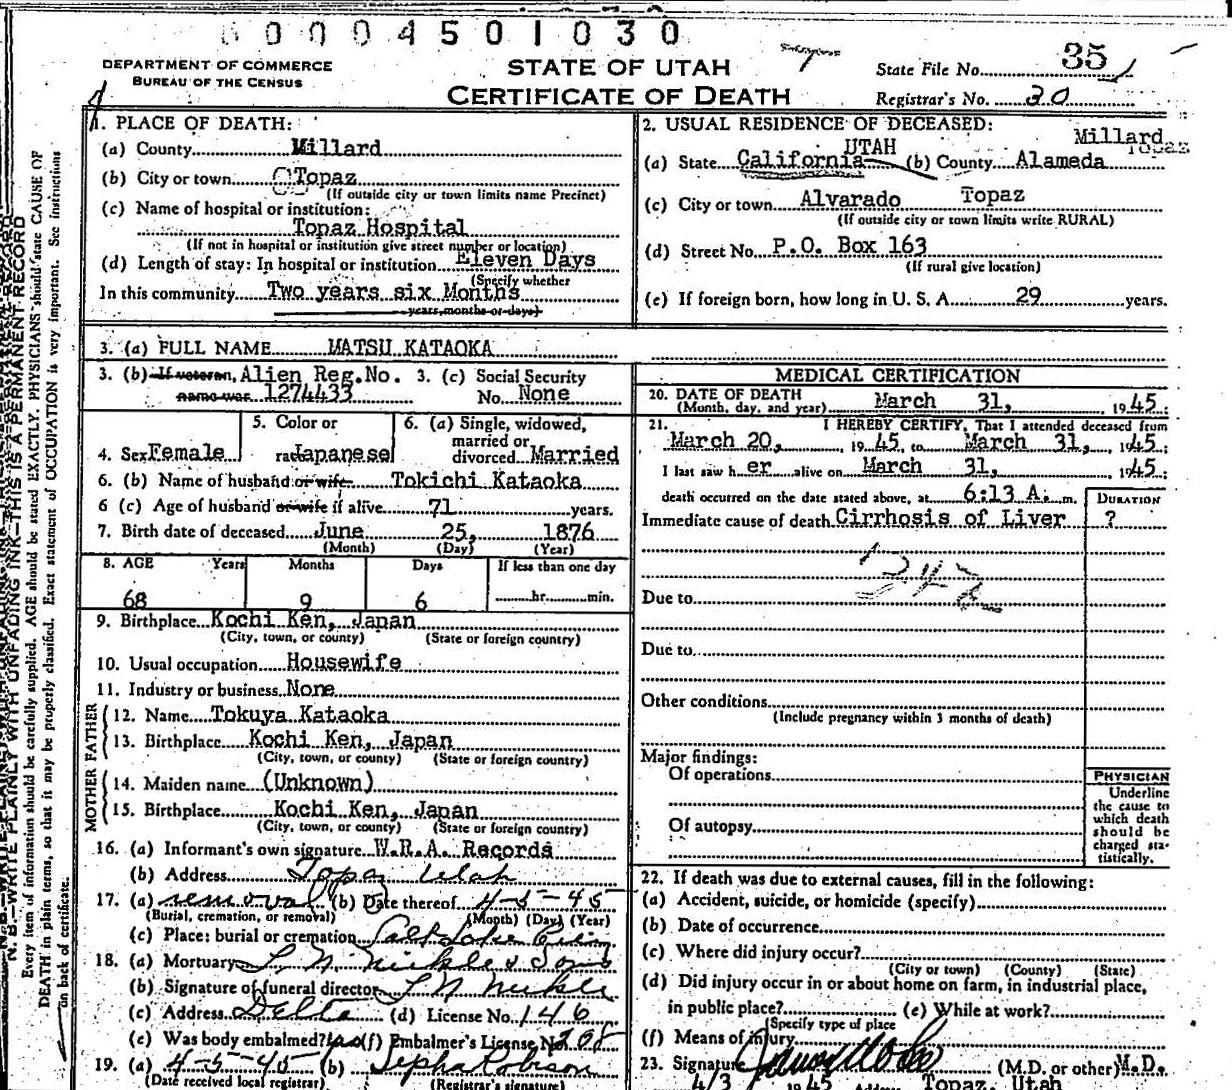 0004501030
DEPARTMENT OF COMMERCE
BUREAU OF THE CENSUS
STATE OF UTAH
CERTIFICATE OF DEATH
State File No. 35
Registrar's No. 30
N. B.—WRITE PLAINLY WITH UNFADING INK—THIS IS A PERMANENT RECORD
Every item of information should be carefully supplied. AGE should be stated EXACTLY. PHYSICIANS should state CAUSE OF
DEATH in plain terms, so that it may be properly classified. Exact statement of OCCUPATION is very important. See instructions
on back of certificate.
1. PLACE OF DEATH:
(a) County Millard
(b) City or town Topaz
(If outside city or town limits name Precinct)
(c) Name of hospital or institution:
Topaz Hospital
(If not in hospital or institution give street number or location)
(d) Length of stay: In hospital or institution Eleven Days
(Specify whether
In this community Two years six Months
years, months or days)
2. USUAL RESIDENCE OF DECEASED:
UTAH Millard
Topaz
(a) State California (b) County Alameda
(c) City or town Alvarado Topaz
(If outside city or town limits write RURAL)
(d) Street No. P.O. Box 163
(If rural give location)
(e) If foreign born, how long in U. S. A. 29 years.
3. (a) FULL NAME MATSU KATAOKA
3. (b) If veteran, Alien Reg.No. 3. (c) Social Security
name war 1274433 No. None
4. Sex Female
5. Color or
race Japanese
6. (a) Single, widowed,
married or
divorced Married
6. (b) Name of husband or wife Tokichi Kataoka
6 (c) Age of husband or wife if alive 71 years.
7. Birth date of deceased June 25, 1876
(Month) (Day) (Year)
8. AGE Years Months Days If less than one day
68 9 6 hr. min.
9. Birthplace Kochi Ken, Japan
(City, town, or county) (State or foreign country)
10. Usual occupation Housewife
11. Industry or business None
FATHER
12. Name Tokuya Kataoka
13. Birthplace Kochi Ken, Japan
(City, town, or county) (State or foreign country)
MOTHER
14. Maiden name (Unknown)
15. Birthplace Kochi Ken, Japan
(City, town, or county) (State or foreign country)
16. (a) Informant's own signature W.R.A. Records
(b) Address Topaz Utah
17. (a) removal (b) Date thereof 4-5-45
(Burial, cremation, or removal) (Month) (Day) (Year)
(c) Place: burial or cremation Salt Lake City
18. (a) Mortuary L N Nickle & Sons
(b) Signature of funeral director L N Nickle
(c) Address Delta (d) License No. 146
(e) Was body embalmed? (f) Embalmer's License No. 208
19. (a) 4-5-45 (b)
(Date received local registrar) (Registrar's signature)
MEDICAL CERTIFICATION
20. DATE OF DEATH
(Month, day, and year) March 31, 1945
21. I HEREBY CERTIFY, That I attended deceased from
March 20, 1945, to March 31, 1945;
I last saw her alive on March 31, 1945;
death occurred on the date stated above, at 6:13 A. m.
DURATION
Immediate cause of death Cirrhosis of Liver ?
Due to
Due to
Other conditions
(Include pregnancy within 3 months of death)
Major findings:
Of operations
Of autopsy
PHYSICIAN
Underline
the cause to
which death
should be
charged sta-
tistically.
22. If death was due to external causes, fill in the following:
(a) Accident, suicide, or homicide (specify)
(b) Date of occurrence
(c) Where did injury occur?
(City or town) (County) (State)
(d) Did injury occur in or about home on farm, in industrial place,
in public place? (e) While at work?
(Specify type of place
(f) Means of injury
23. Signature (M.D. or other) M.D.
4/3 1945 Topaz, Utah